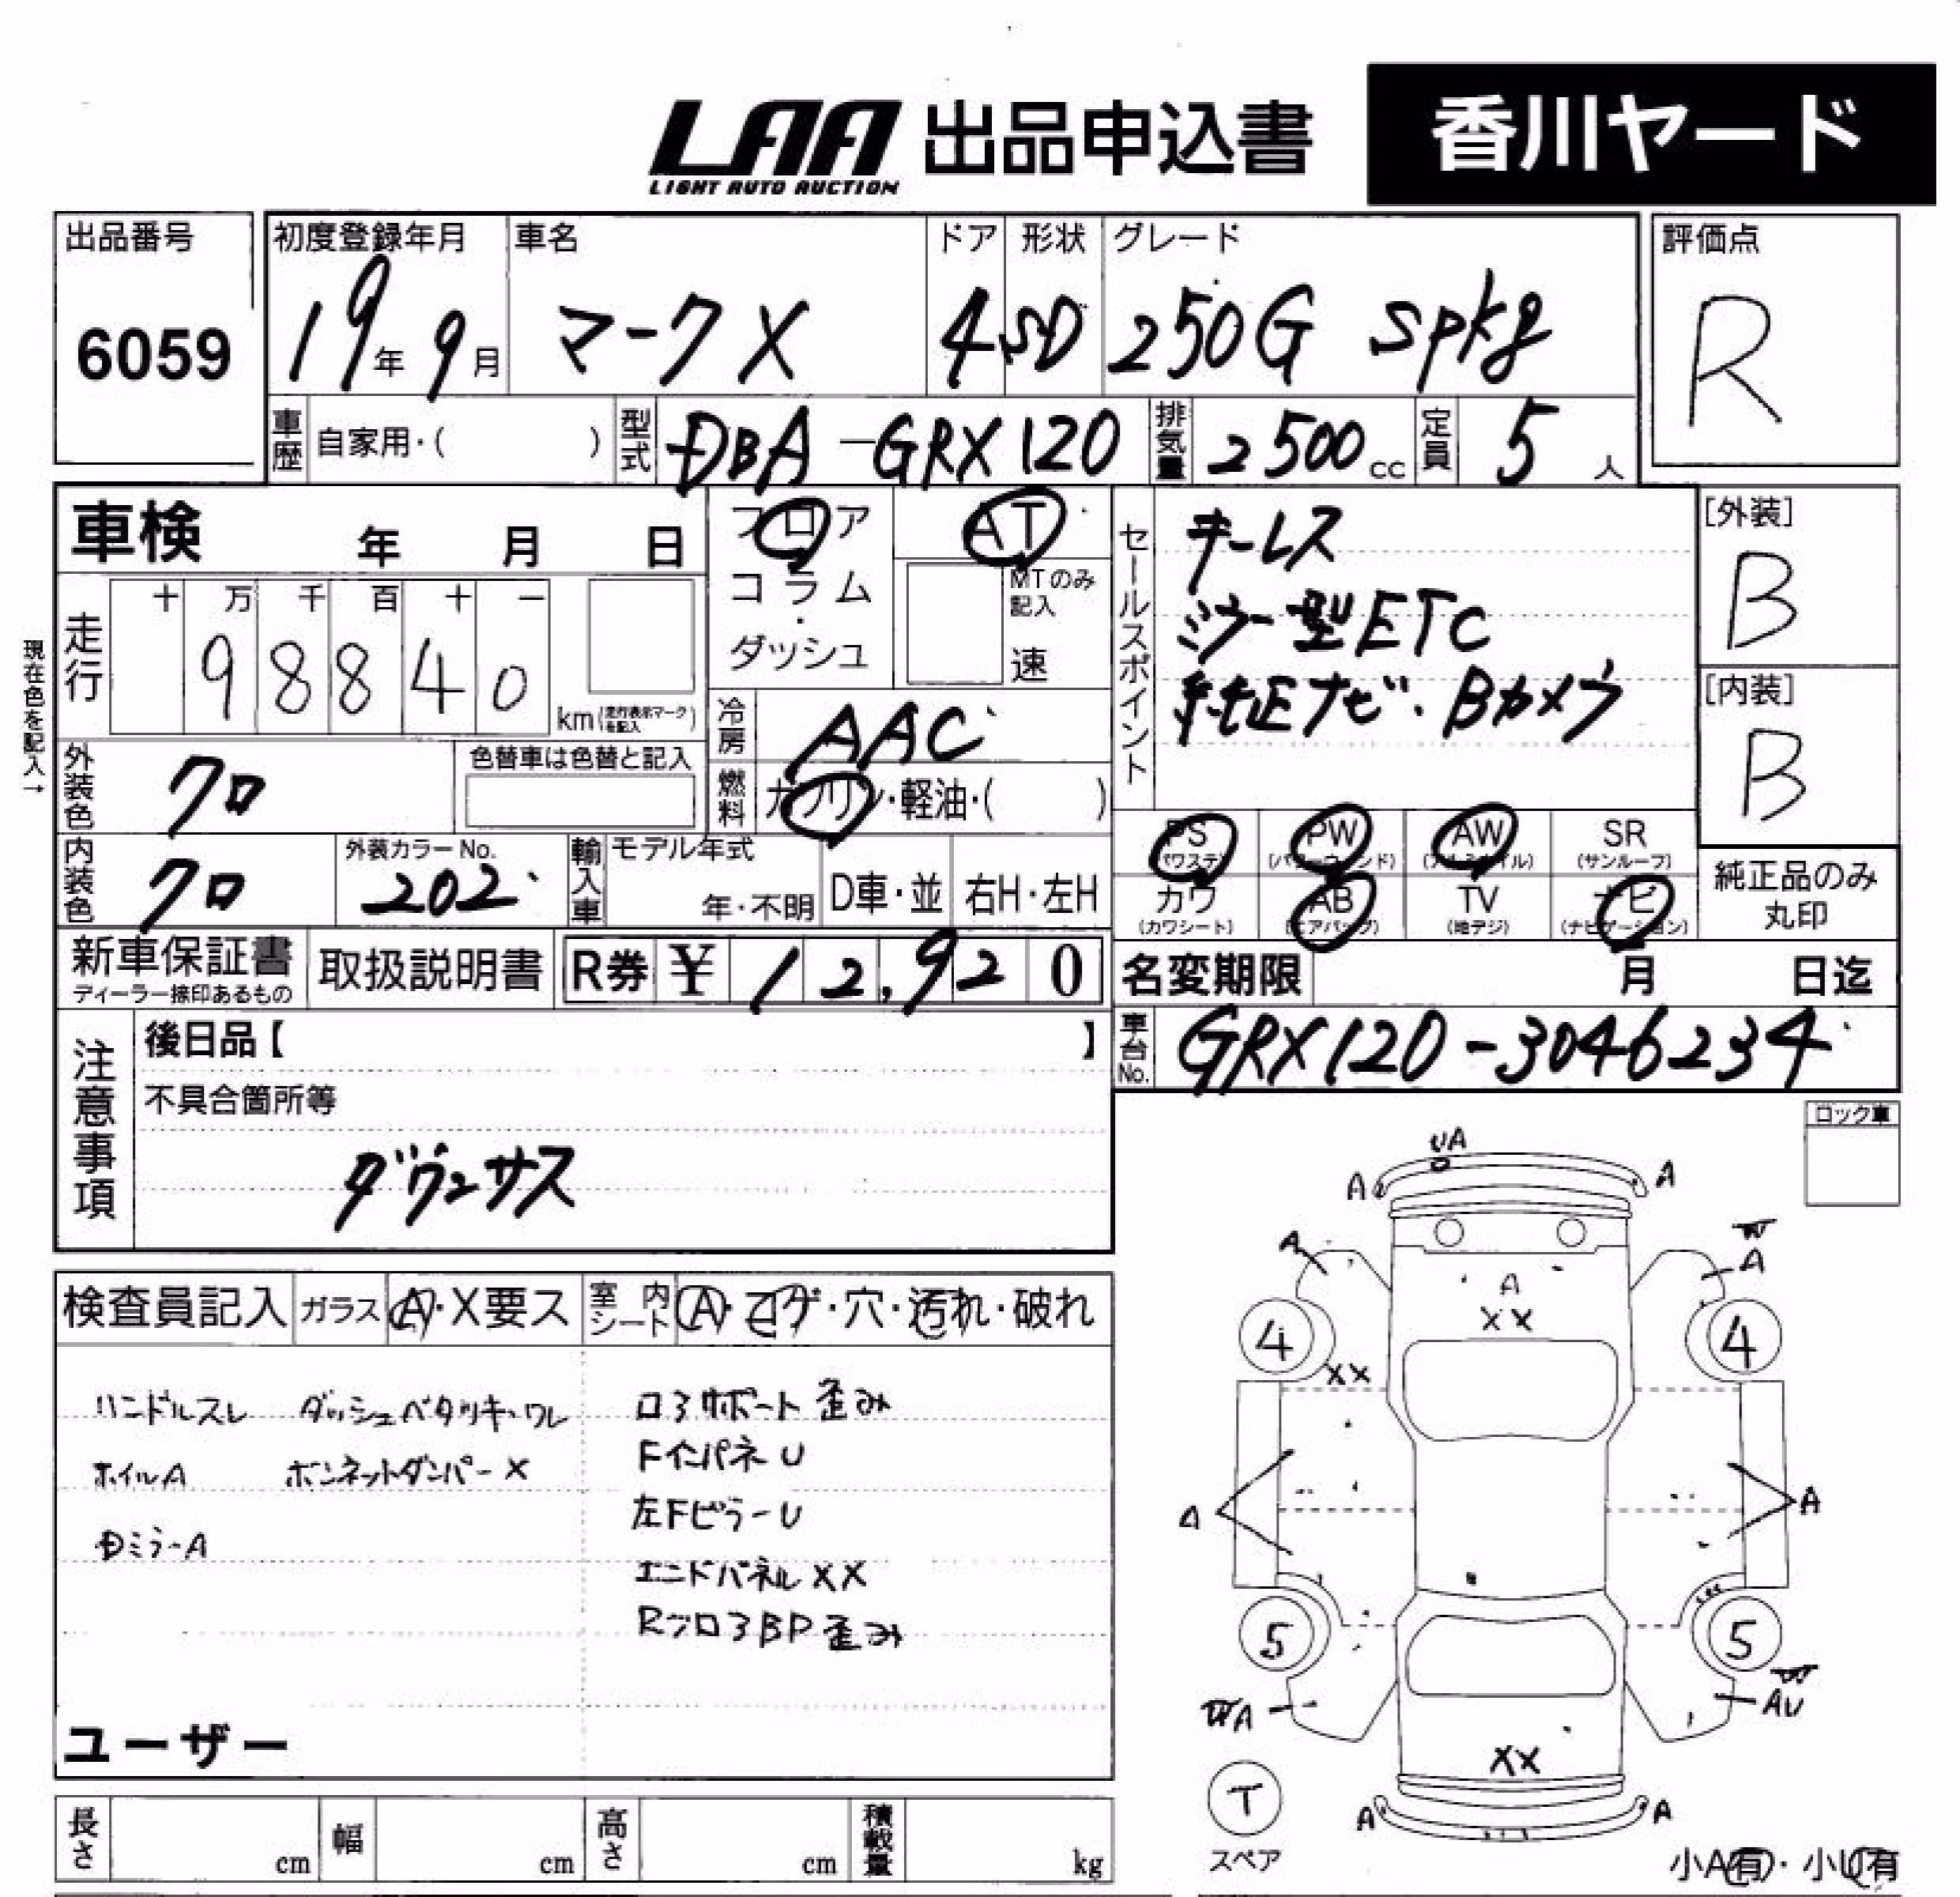 LAA 出品申込書 香川ヤード
LIGHT AUTO AUCTION
出品番号 初度登録年月 車名 ドア 形状 グレード 評価点
6059 19年9月 マークX 4 SD 250G Spkg R
車歴 自家用・( ) 型式 DBA-GRX120 排気量 2500cc 定員 5人
車検 年 月 日
フロア AT
コラム
ダッシュ
MTのみ記入
速
セールスポイント
キーレス
ミラー型ETC
純正ナビ・Bカメラ
[外装]
B
[内装]
B
現在色を記入→
走行 十 万 千 百 十 一
98840 km(走行表示マークを記入)
冷房 AAC
燃料 ガソリン・軽油・( )
外装色 クロ 色替車は色替と記入
内装色 クロ 外装カラーNo. 202 輸入車 モデル年式 年・不明 D車・並 右H・左H
PS PW AW SR
(パワステ) (パワーウィンド) (アルミホイル) (サンルーフ)
カワ AB TV ナビ
(カワシート) (エアバッグ) (地デジ) (ナビゲーション)
純正品のみ
丸印
新車保証書 取扱説明書 R券 ¥12,920
ディーラー捺印あるもの
名変期限 月 日迄
車台No. GRX120-3046234
注意事項
後日品【 】
不具合箇所等
ダウンサス
ロック車
検査員記入 ガラス A・X要ス 室内シート A・コゲ・穴・汚れ・破れ
ハンドルスレ ダッシュベタツキ・ワレ コアサポート歪み
ホイルA ボンネットダンパーX FインパネU
左FピラーU
ミラーA
エンドパネルXX
歪み
ユーザー
UA
A A
A A
A
XX
4 4
XX
A A
5 5
A AU
XX
T
A A
スペア
小A有・小U有
長さ cm 幅 cm 高さ cm 積載量 kg